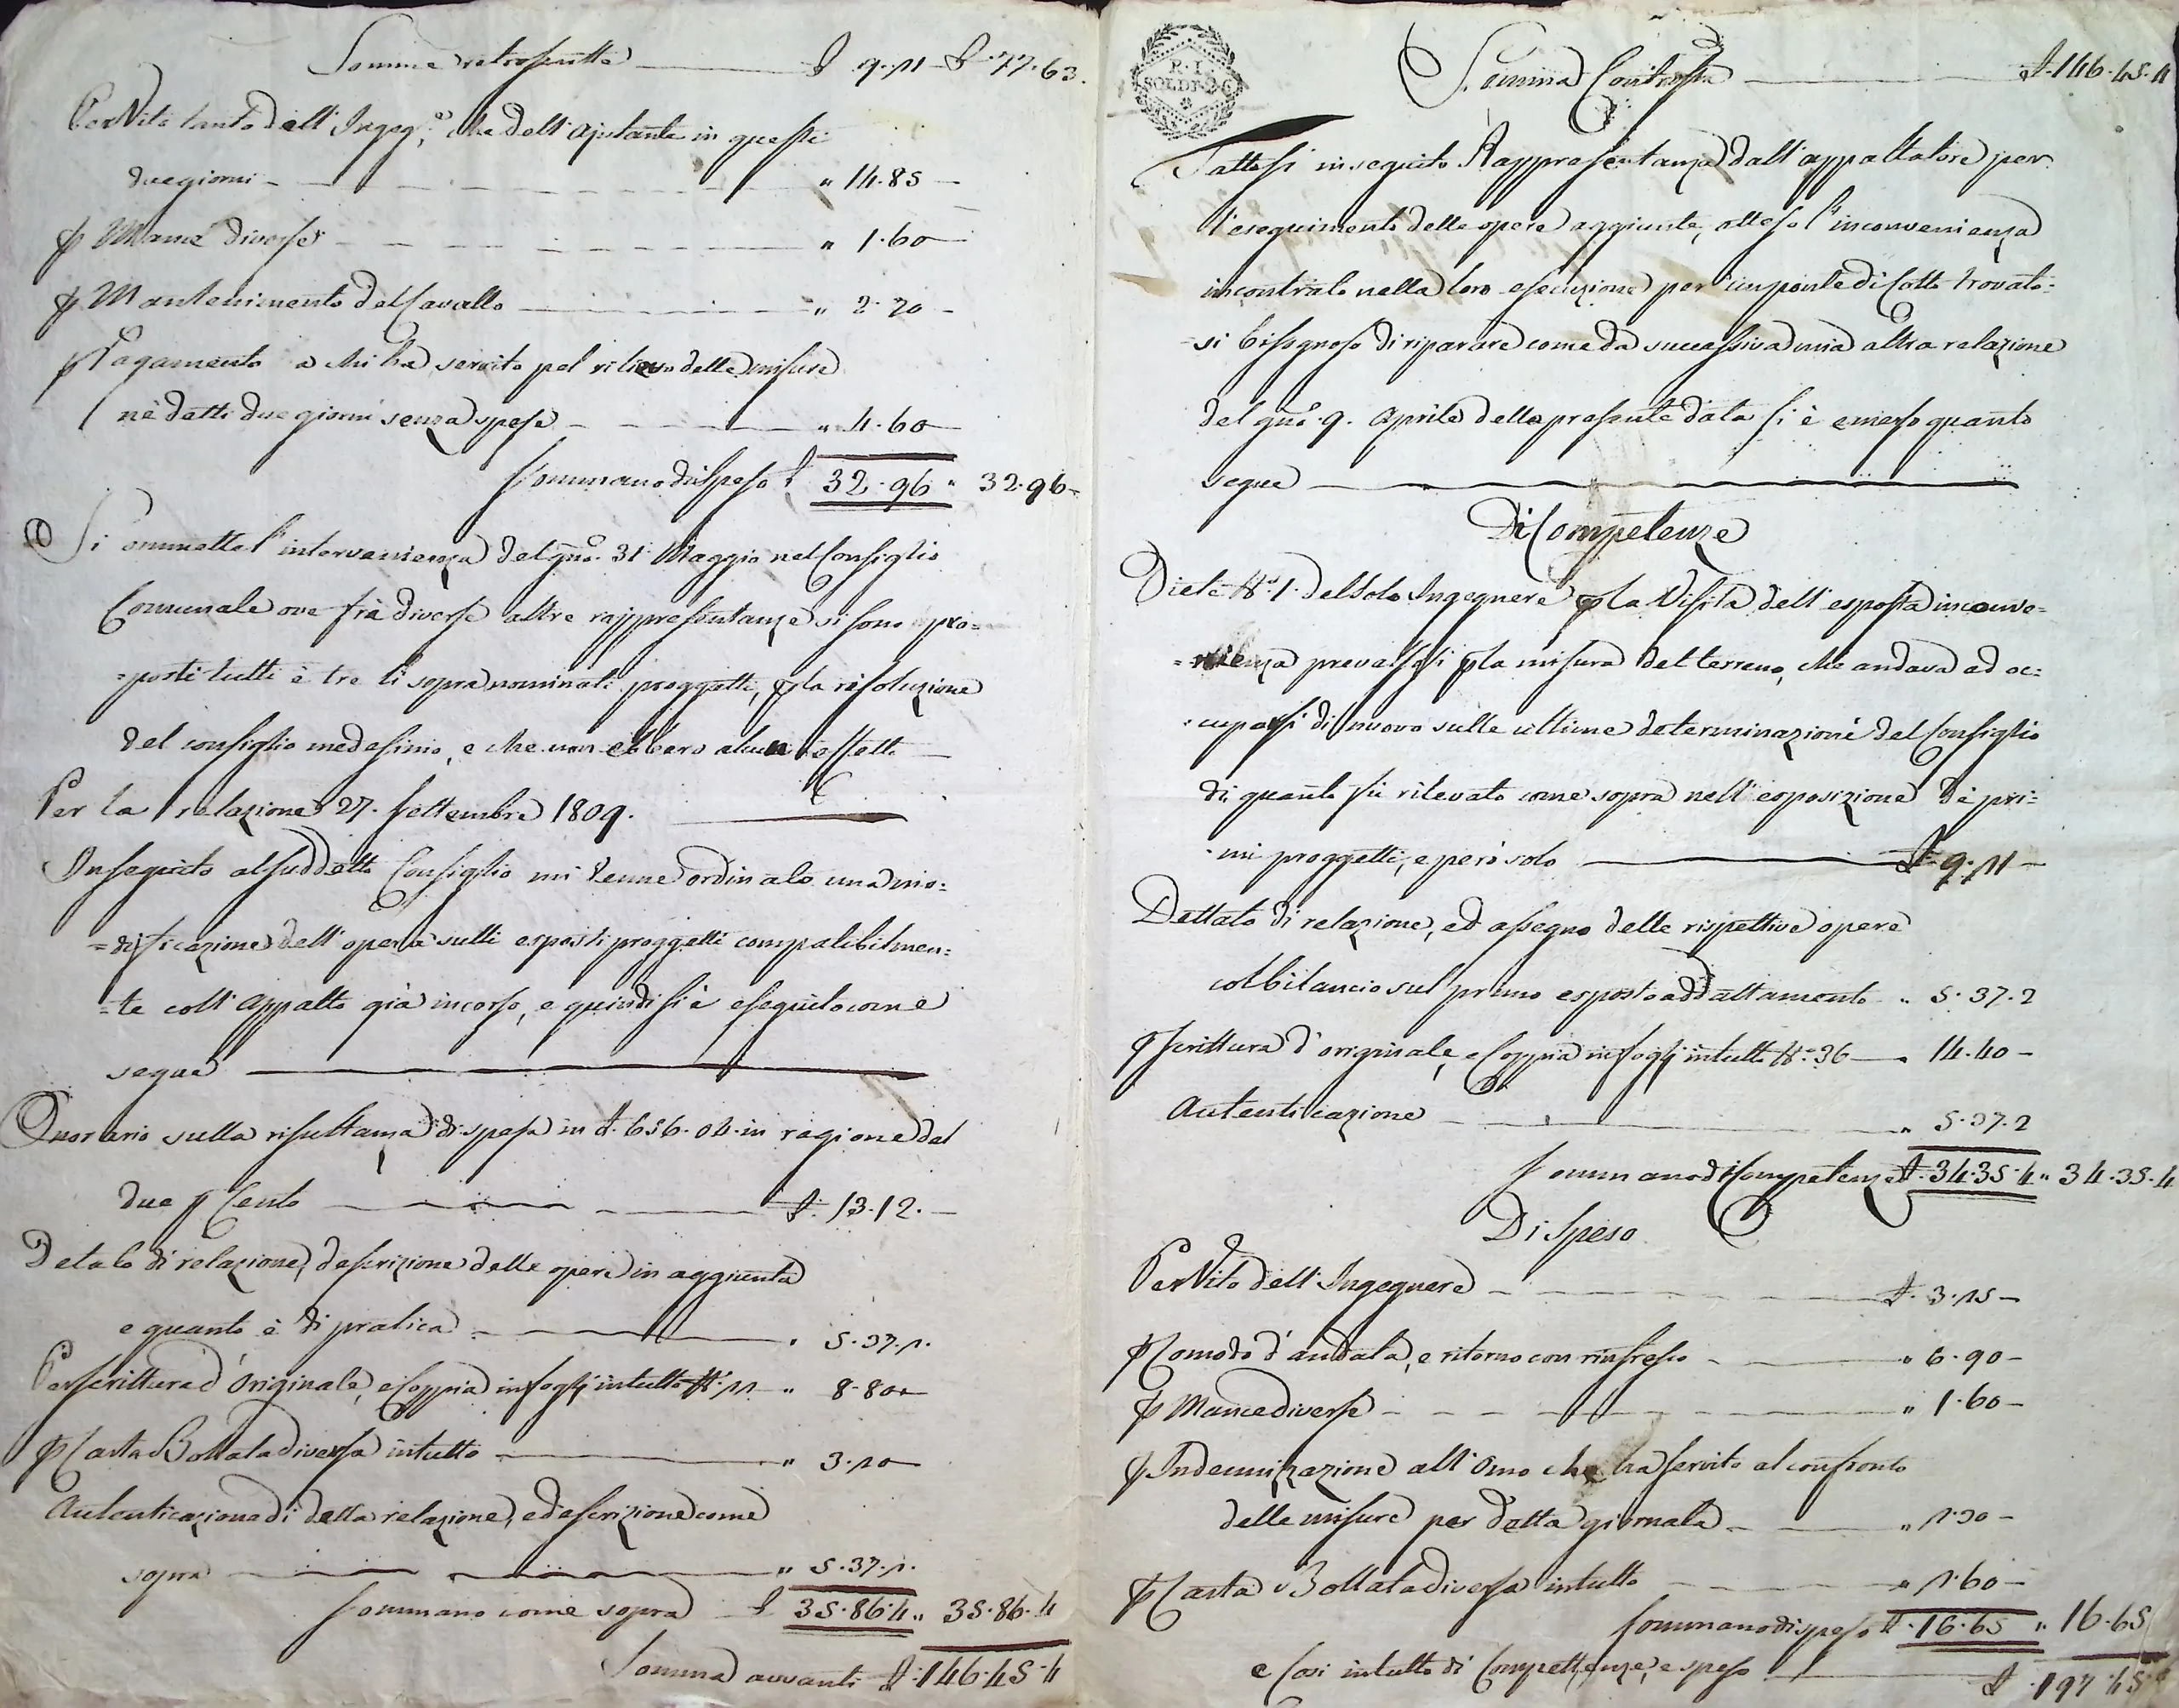 Somma retroscritta £ 9.11 £ 77.63.
Per Vito tanto dell' Ingeg.e che dell' Ajutante in questi
due giorni " 14.85
p Mancie diverse " 1.60
p Mantenimento del Cavallo " 2.70
p Pagamento a chi ha servito pel rilievo delle misure
nè detti due giorni senza spese " 4.60
Sommano di Spese £ 32.96 " 32.96
Si ommette l'intervenienza del gno. 31 Maggio nel Consiglio
Comunale ove frà diverse altre rappresentanze si sono pro=
=posti tutti è tre li sopra nominati proggetti, p la risoluzione
del consiglio medesimo, e che non ebbero alcun effetto
Per la relazione 27. Settembre 1809.
In seguito al suddetto Consiglio mi venne ordinato una mo=
=dificazione dell' opera sulli esposti proggetti compatibilmen=
=te coll' Appalto già incorso, e quindi si è eseguito come
segue
Onorario sulla risultanza di spesa in £. 656.04. in ragione del
due p Cento £. 13.12.
Detato di relazione, descrizione delle opere in aggiunta
e quanto è di pratica " 5.37.1.
Per scritture d'Originale, e Coppia in fogli in tutto N.° 11 " 8.80
p Carta Bollata diversa in tutto " 3.20
Autenticazione di detta relazione, e descrizione come
sopra " 5.37.1.
Sommano come sopra £ 35.86.4 " 35.86.4
Somma avvanti £. 146.45.4
R. I.
SOLDI
Somma Contrascritta £. 146.45.4
Fattosi in seguito Rappresentanza dall' appaltatore per
l'eseguimento delle opere aggiunte, atteso l'inconvenienza
incontrato nella loro esecuzione per un ponte di Cotto trovato=
=si bisognoso di riparare come da successiva mia altra relazione
del gno. 9. Aprile della presente data si è emerso quanto
segue
Di Competenze
Diete N.° 1. del solo Ingegnere p la Visita dell' esposta inconve=
=nienza prevalsosi p la misura del terreno, che andava ad oc=
=cuparsi di nuovo sulle ultime determinazioni del Consiglio
di quanto fù rilevato come sopra nell' esposizione dè pri=
=mi proggetti, e però solo £ 9.11
Dettato di relazione, ed assegno delle rispettive opere
col bilancio sul primo esposto addattamento " 5.37.2
p scrittura d'originale, e Coppia in fogli in tutto N.° 36 " 14.40
Autenticazione " 5.37.2
Sommano di Competenze £. 34.35.4 " 34.35.4
Di Spese
Per Vito dell' Ingegnere £. 3.15
p Comodo d'andata, e ritorno con rinfresco " 6.90
p Mancie diverse " 1.60
p Indennizzazione all' Omo che ha servito al confronto
delle misure per detta giornata " 1.30
p Carta Bollata diversa in tutto " 1.60
Sommano di spese £. 16.65 " 16.65
e Così in tutto di Competenze, e spese £. 197.45.